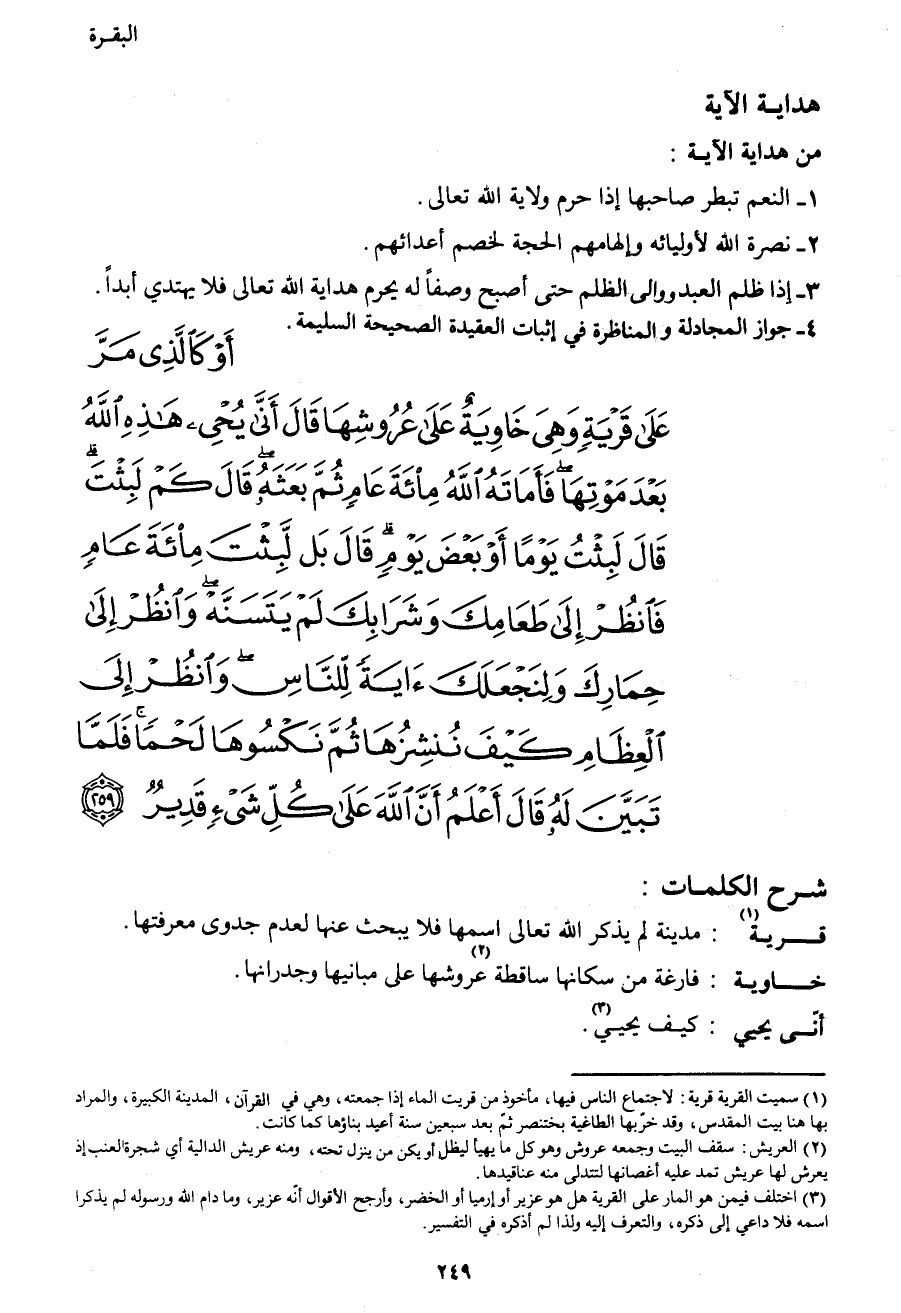 البقـرة
هدايـة الآية
من هداية الآيـة :
١ـ النعم تبطر صاحبها إذا حرم ولاية الله تعالى .
٢ـ نصرة الله لأوليائه وإلهامهم الحجة لخصم أعدائهم .
٣ـ إذا ظلم العبد ووالى الظلم حتى أصبح وصفاً له يحرم هداية الله تعالى فلا يهتدي أبداً .
٤ـ جواز المجادلة والمناظرة في إثبات العقيدة الصحيحة السليمة .
أَوْ كَٱلَّذِى مَرَّ
عَلَىٰ قَرْيَةٍ وَهِىَ خَاوِيَةٌ عَلَىٰ عُرُوشِهَا قَالَ أَنَّىٰ يُحْىِۦ هَـٰذِهِ ٱللَّهُ
بَعْدَ مَوْتِهَا ۖ فَأَمَاتَهُ ٱللَّهُ مِا۟ئَةَ عَامٍ ثُمَّ بَعَثَهُۥ ۖ قَالَ كَمْ لَبِثْتَ ۖ
قَالَ لَبِثْتُ يَوْمًا أَوْ بَعْضَ يَوْمٍ ۖ قَالَ بَل لَّبِثْتَ مِا۟ئَةَ عَامٍ
فَٱنظُرْ إِلَىٰ طَعَامِكَ وَشَرَابِكَ لَمْ يَتَسَنَّهْ ۖ وَٱنظُرْ إِلَىٰ
حِمَارِكَ وَلِنَجْعَلَكَ ءَايَةً لِّلنَّاسِ ۖ وَٱنظُرْ إِلَى
ٱلْعِظَامِ كَيْفَ نُنشِزُهَا ثُمَّ نَكْسُوهَا لَحْمًا ۚ فَلَمَّا
تَبَيَّنَ لَهُۥ قَالَ أَعْلَمُ أَنَّ ٱللَّهَ عَلَىٰ كُلِّ شَىْءٍ قَدِيرٌ ٢٥٩
شـرح الكلمـات :
قـــريـة(١) : مدينة لم يذكر الله تعالى اسمها فلا يبحث عنها لعدم جدوى معرفتها .
خـــاويـة : فارغة من سكانها ساقطة عروشها(٢) على مبانيها وجدرانها .
أنّـى يحيي : كيـف يحيـي(٣) .
(١) سميت القرية قرية : لاجتماع الناس فيها، مأخوذ من قريت الماء إذا جمعته، وهي في القرآن، المدينة الكبيرة، والمراد
بها هنا بيت المقدس، وقد خرّبها الطاغية بختنصر ثمّ بعد سبعين سنة أعيد بناؤها كما كانت .
(٢) العريش : سقف البيت وجمعه عروش وهو كل ما يهيأ ليظل أو يكن من ينزل تحته، ومنه عريش الدالية أي شجرة العنب إذ
يعرش لها عريش تمد عليه أغصانها لتتدلى منه عناقيدها .
(٣) اختلف فيمن هو المار على القرية هل هو عزير أو إرميا أو الخضر، وأرجح الأقوال أنّه عزير، وما دام الله ورسوله لم يذكرا
اسمه فلا داعي إلى ذكره، والتعرف إليه ولذا لم أذكره في التفسير .
٢٤٩